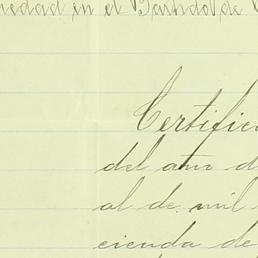 en el Partido de
Certific
del año d
al de mil
cienda de